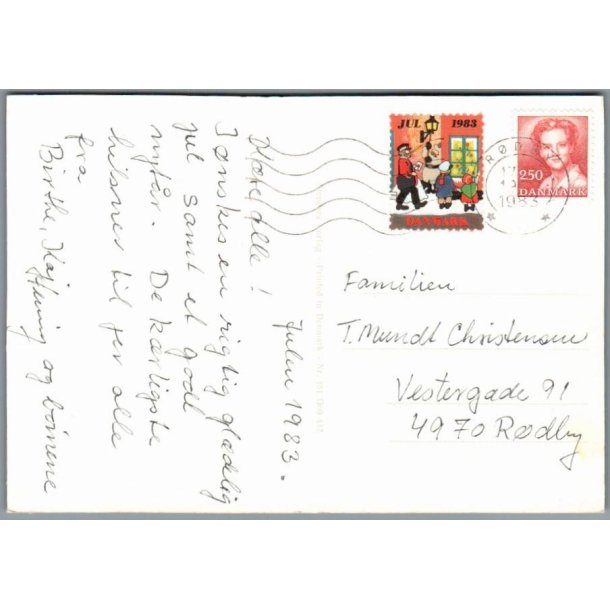 Julen 1983.
Kære alle!
I ønskes en rigtig glædelig
jul samt et godt
nytår. De kærligste
hilsner til jer alle
fra
Birthe, Kaj og børnene
JUL 1983
DANMARK
250
DANMARK
RØD
1983
Printed in Denmark
Familien
T. Mundt Christensen
Vestergade 91
4970 Rødby